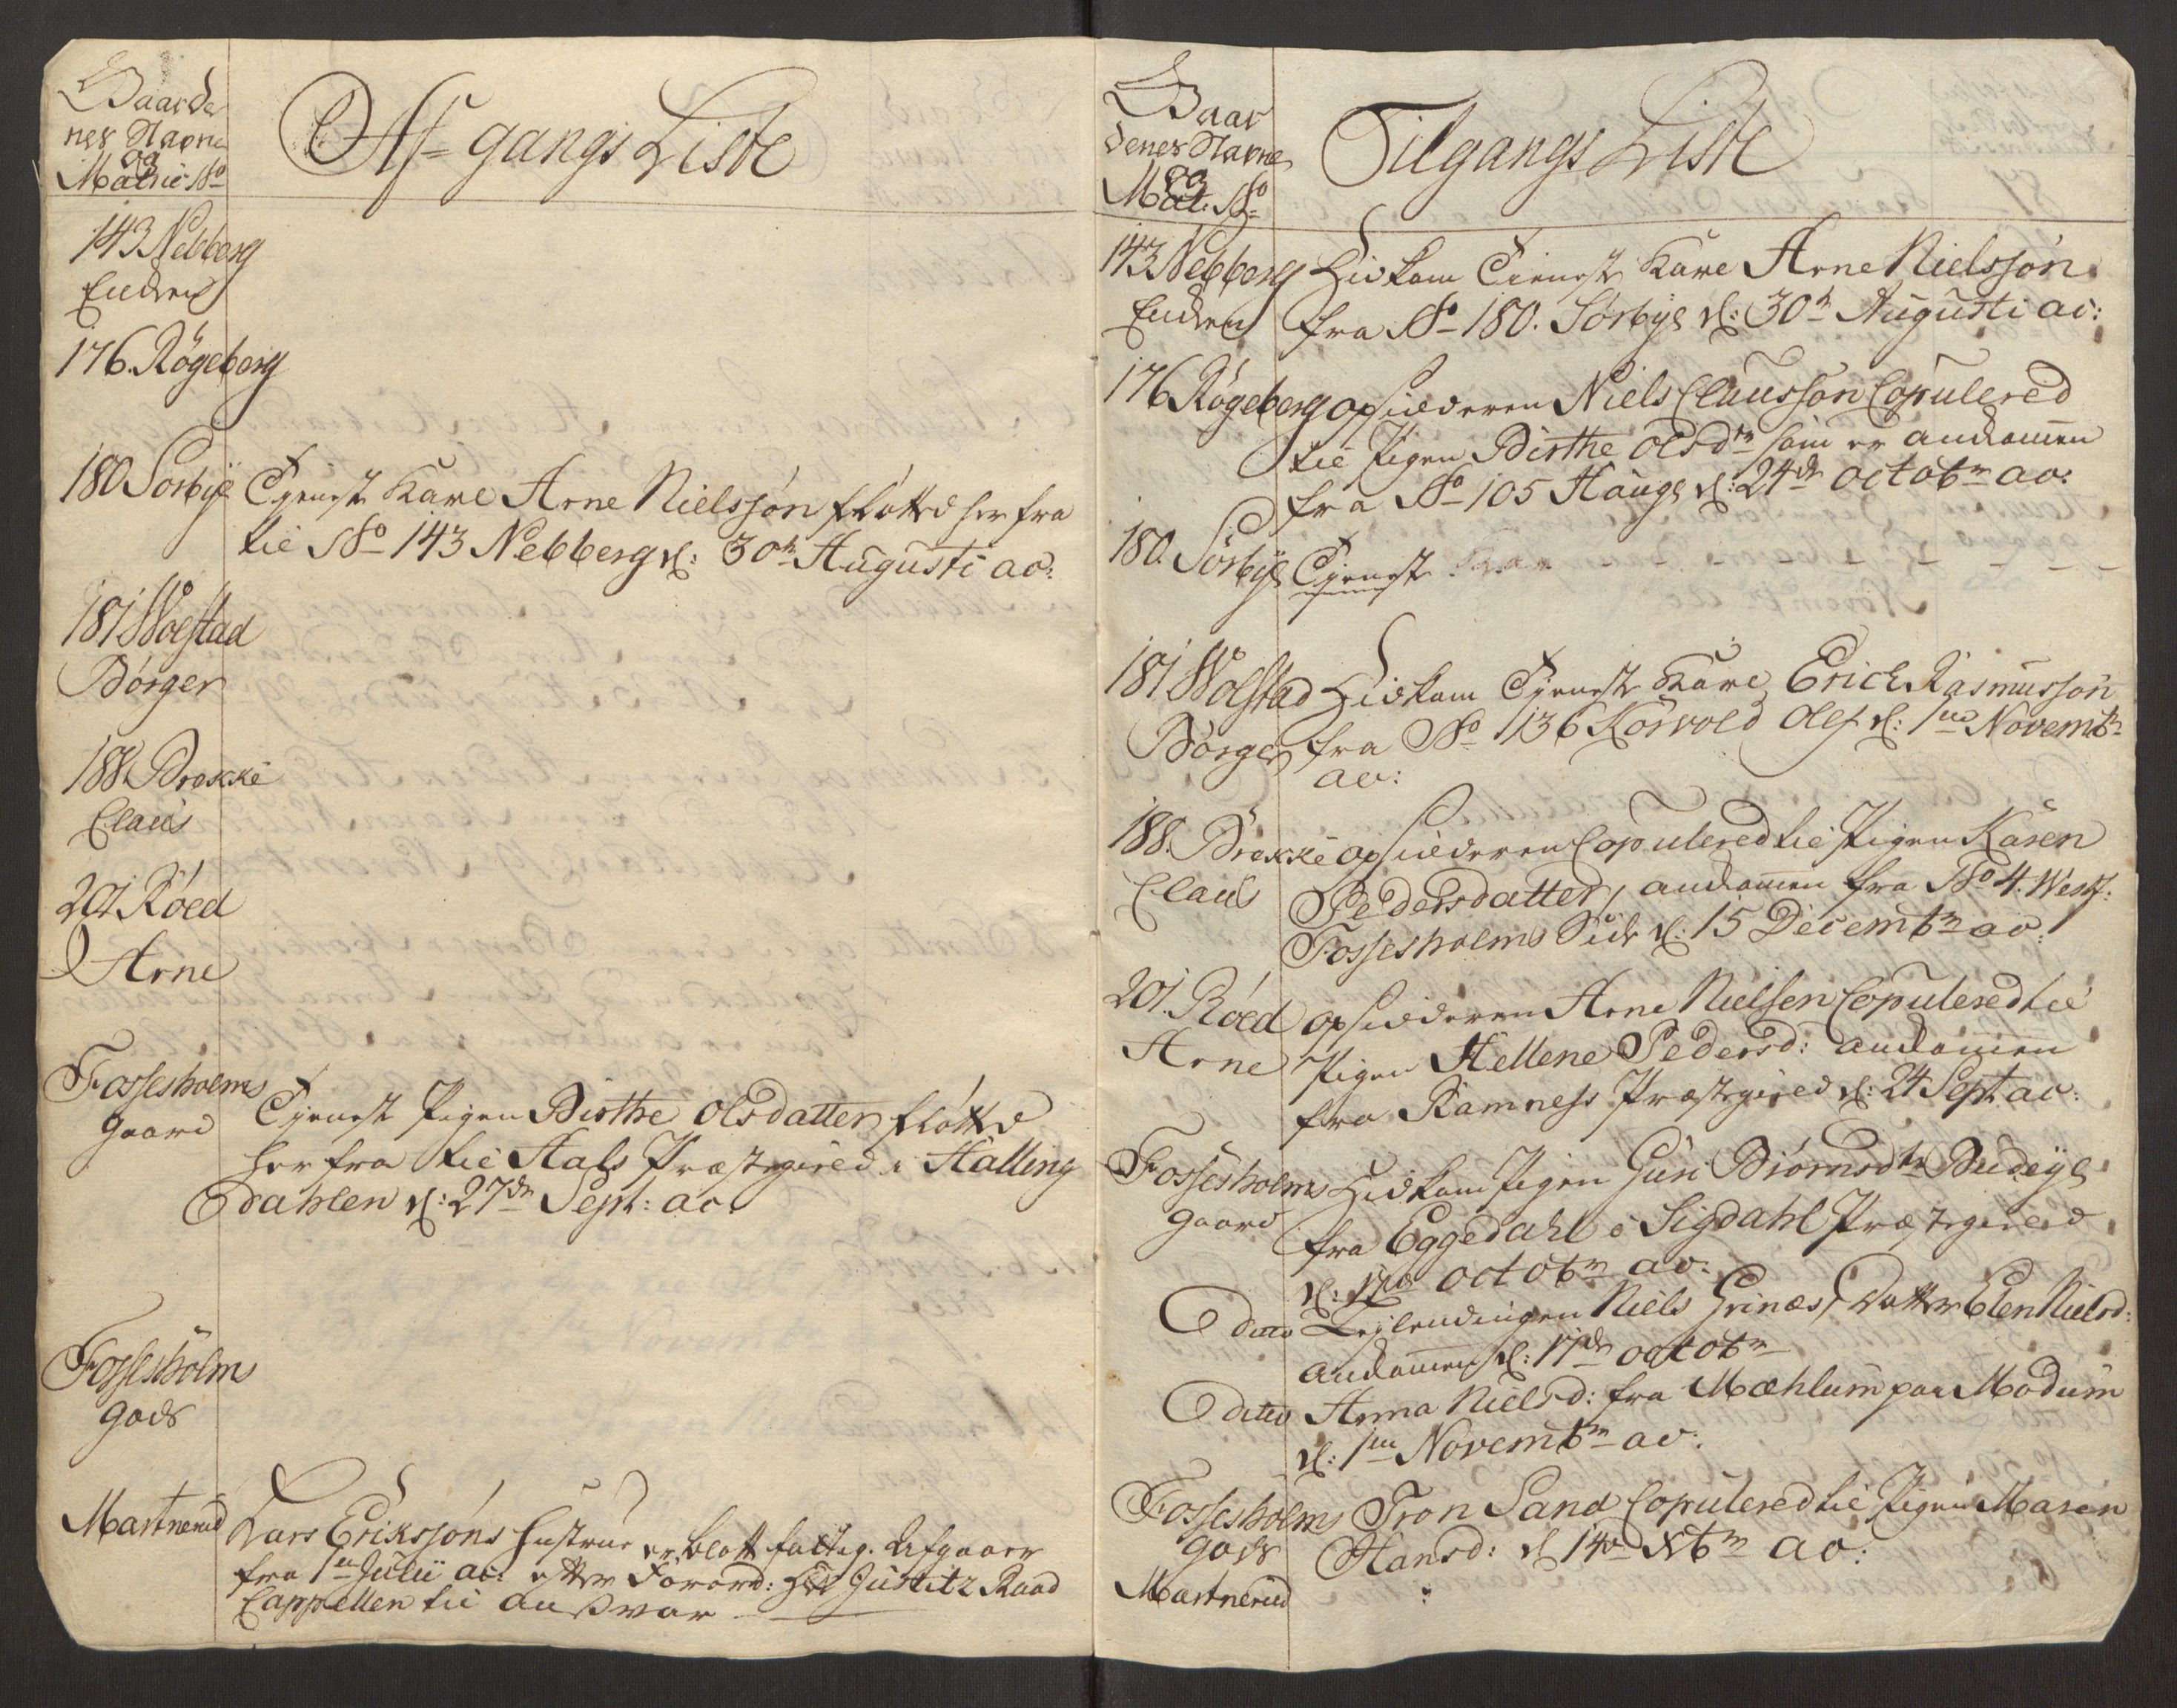 Gaarde
nes Navne
og
Matric No
Af-gangs Liste
143 Nebberg
Endren
176. Røgeberg
180 Sørbye Tjeneste Karl Arne Nielssøn fløtted her fra
til No 143 Nebberg d: 30te Augusti ao:
181 Wolstad
Børger
188. Brekke
Claus
201 Røed
Arne
Fossesholms
gaard
Tjeneste Pigen Birthe Olsdatter fløtted
her fra til Aals Præstegield i Halling
dahlen d: 27de Sept: ao.
Fossesholms
gods
Martnerud Lars Erikssøns Hustrue er blott fattig. Afgaaer
fra 1te Julii ao: efter Forord: Hr Justitz Raad
Cappellen til ansvar
Gaar
denes Navne
og
Mat: No
Tilgangs Liste
143 Nebberg Hidkom Tieneste Karl Arne Nielssøn
Endren fra No 180. Sørbye d: 30te Augusti ao:
176 Røgeberg opsidderen Niels Claussøn Copulered
til Pigen Birthe Olsdtr som er ankommen
fra No 105 Houge d: 24de Octobr ao:
180. Sørbye Tjeneste
181 Wolstad Hidkom Tjeneste Karl Erich Rasmussøn
Børger fra No 136 Korvold Oles d: 1ste Novembr
ao:
188. Brekke opsidderen Copulered til Pigen Karen
Claus Pedersdatter, ankommen fra No 4. Westf:
Fossesholms Side d: 15 Decembr ao:
201. Røed opsidderen Arne Nielsen Copulered til
Arne Pigen Hellene Pedersd: ankommen
fra Ramness Præstegield d: 24 Sept: ao:
Fossesholms Hidkom Pigen Guri Biørnsdtr Budeye
gaard fra Eggedahl i Sigdahl Præstegield
d: 17de Octobr ao:
dito Leylendingen Niels Grinæs, Datter Elen Nielsd:
ankommen d: 17de Octobr
dito Anna Nielsd: fra Mæhlum paa Modum
d: 1ste Novembr ao:
Fossesholms Tron Sand Copulered til Pigen Maren
gods Hansd: d 14de Xbr ao:
Martnerud